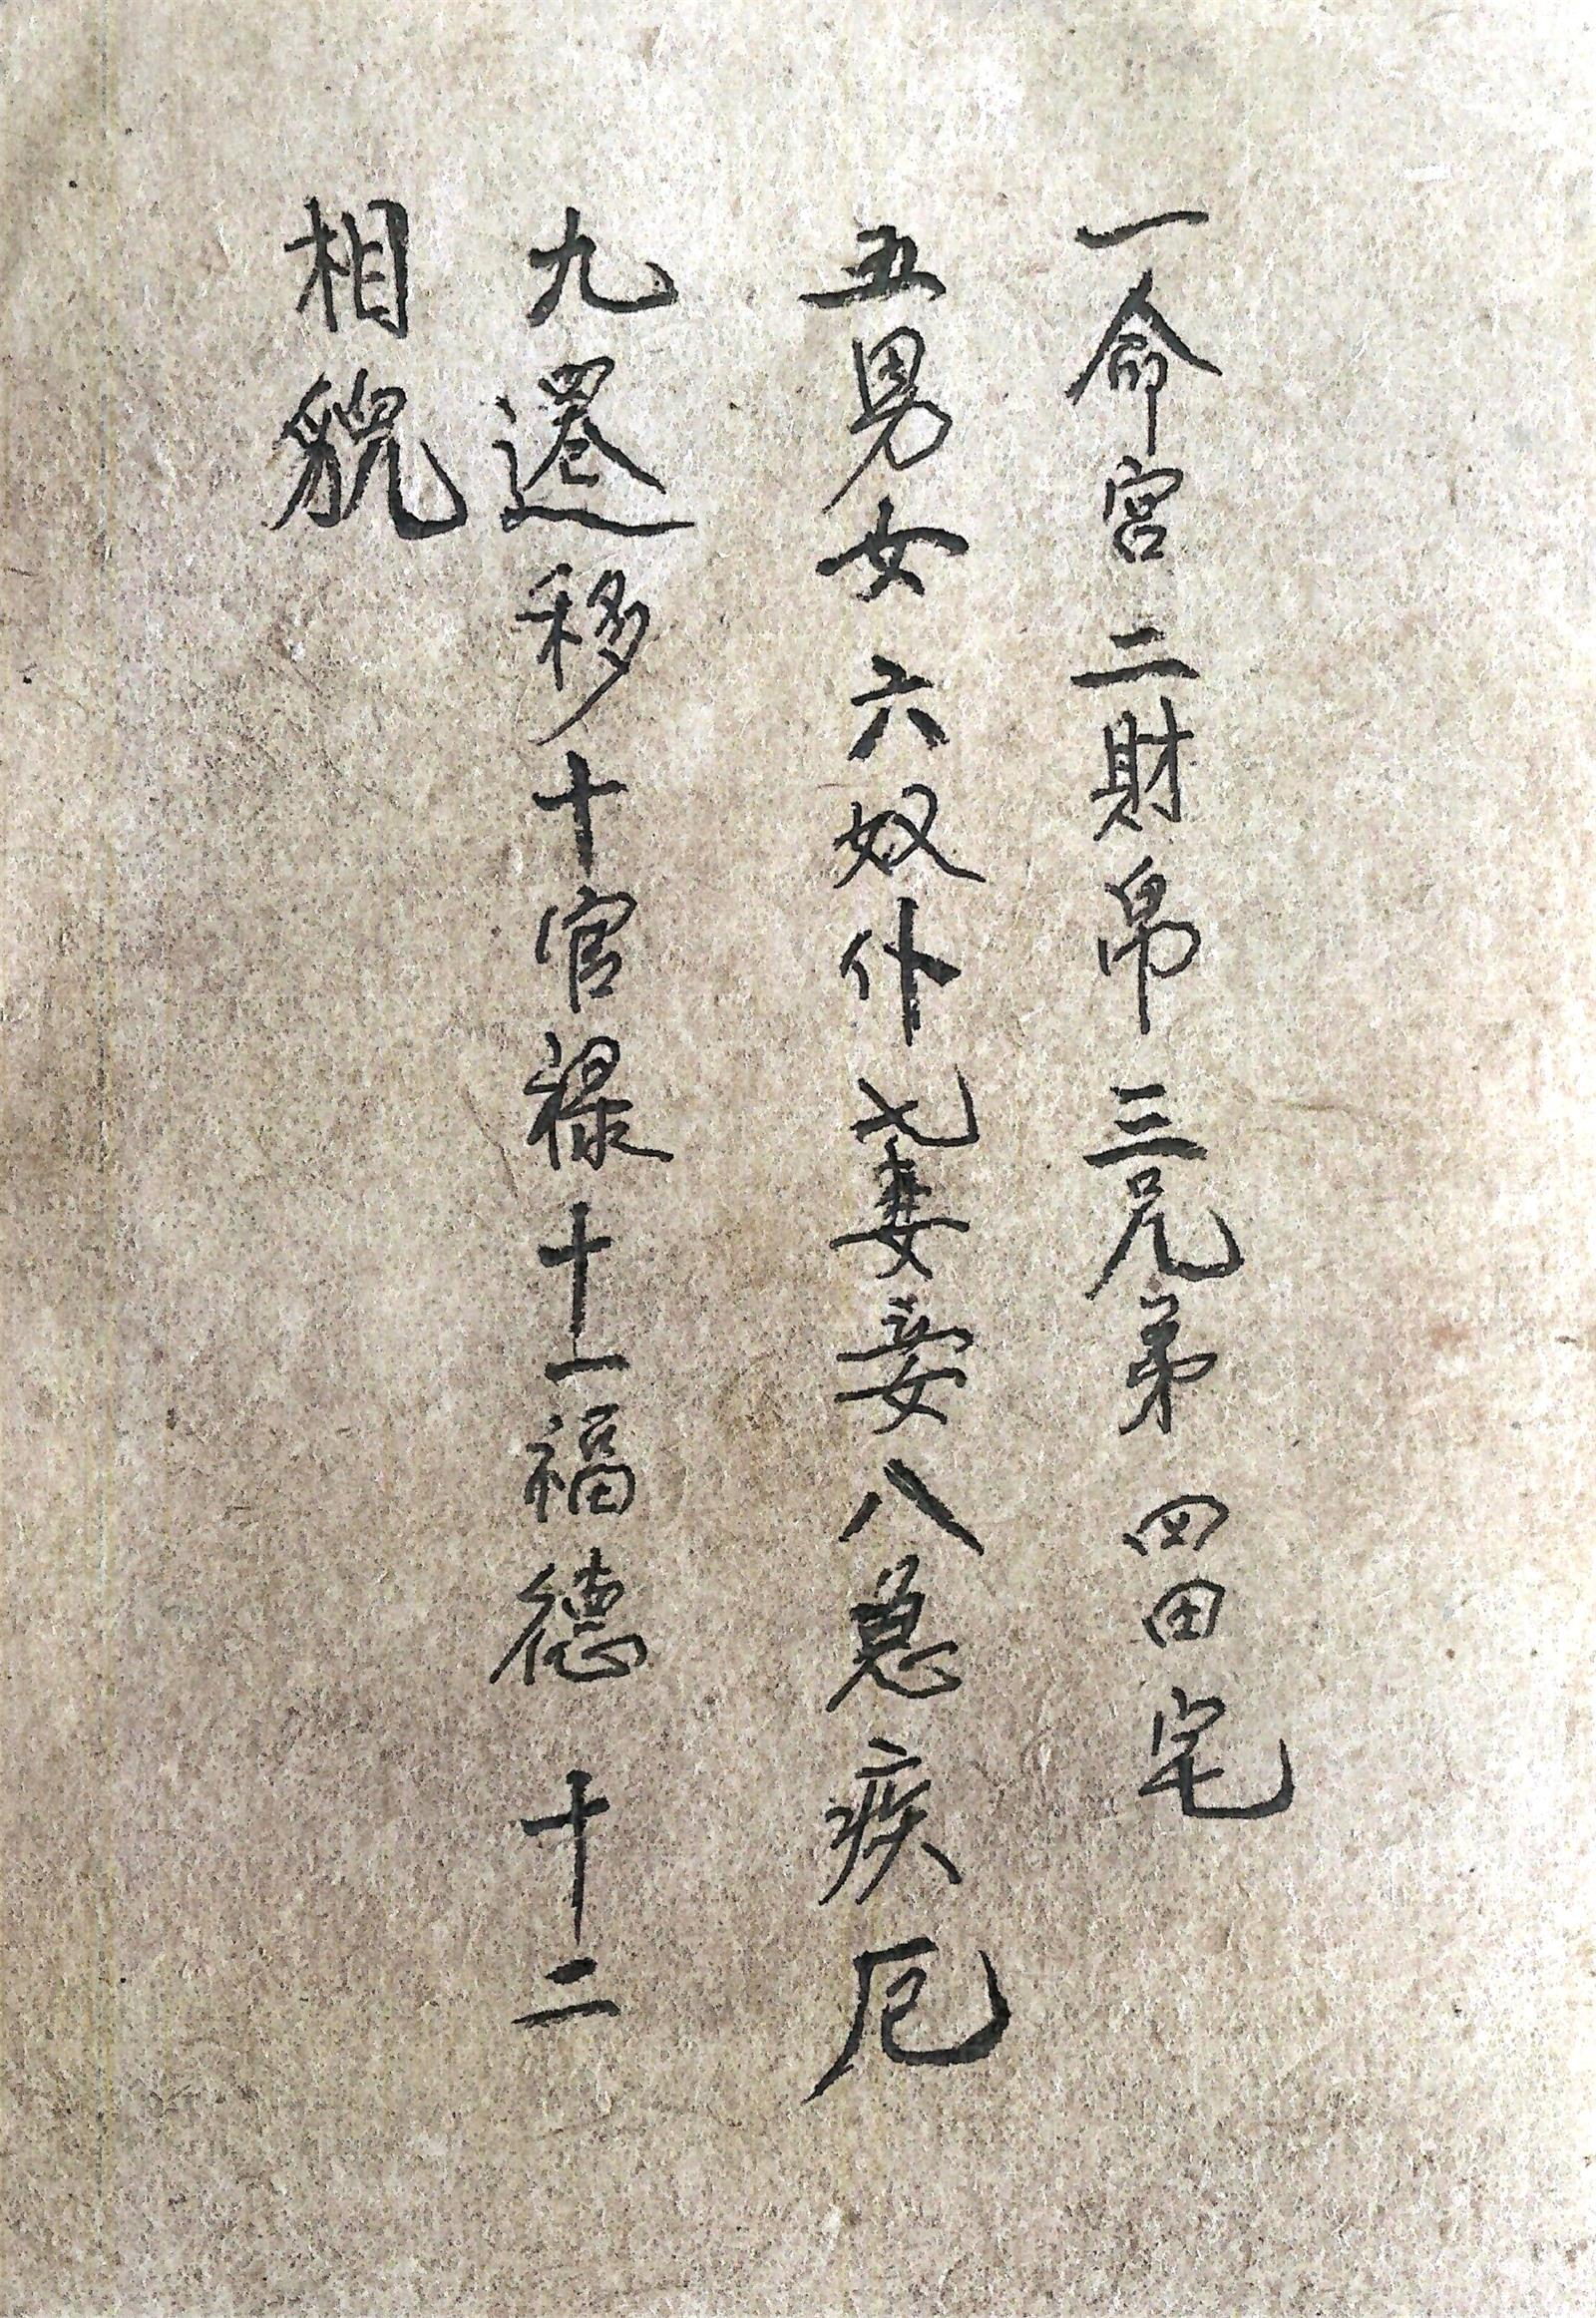 一命宮二財帛三兄弟四田宅
五男女六奴仆七妻妾八急疾厄
九遷移十官禄十一福德十二
相貌